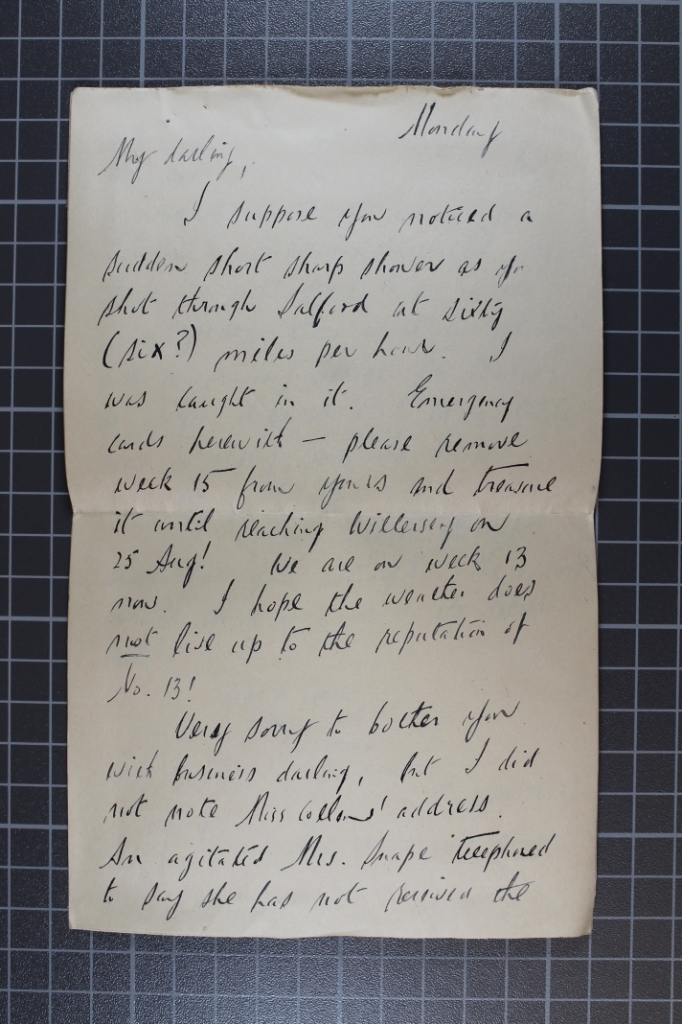 Monday
My darling,
I suppose you noticed a
sudden short sharp shower as you
shot through Salford at sixty
(six?) miles per hour. I
was caught in it. Emergency
cards herewith — please remove
week 15 from yours and treasure
it until reaching Willersey on
25 Aug! We are on week 13
now. I hope the weather does
not live up to the reputation of
No. 13!
Very sorry to bother you
with business darling, but I did
not note Miss Collens' address.
An agitated Mrs. Snape telephoned
to say she has not received the